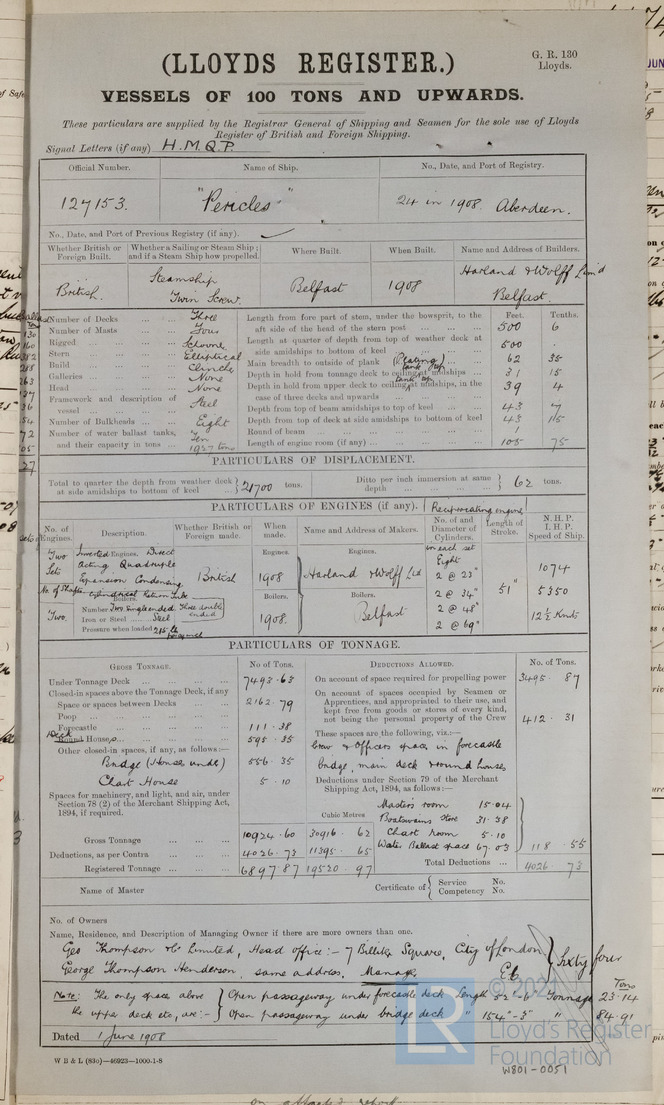 (LLOYDS REGISTER.)
G. R. 130
Lloyds.
VESSELS OF 100 TONS AND UPWARDS.
These particulars are supplied by the Registrar General of Shipping and Seamen for the sole use of Lloyds
Register of British and Foreign Shipping.
Signal Letters (if any) H.M.Q.P.
Official Number. Name of Ship. No., Date, and Port of Registry.
127153. "Pericles" 24 in 1908. Aberdeen.
No., Date, and Port of Previous Registry (if any).
Whether British or Foreign Built. Whether a Sailing or Steam Ship; and if a Steam Ship how propelled. Where Built. When Built. Name and Address of Builders.
British. Steamship Twin Screw. Belfast 1908 Harland & Wolff Limd Belfast.
Number of Decks ... ... Three
Number of Masts ... ... Four
Rigged ... ... Schooner
Stern ... ... Elliptical
Build ... ... Clincher
Galleries ... ... None
Head ... ... None
Framework and description of vessel ... ... Steel
Number of Bulkheads ... Eight
Number of water ballast tanks, and their capacity in tons ... Ten 1927 tons
Feet. Tenths.
Length from fore part of stem, under the bowsprit, to the aft side of the head of the stern post 500 6
Length at quarter of depth from top of weather deck at side amidships to bottom of keel 500 .
Main breadth to outside of plank (Plating) 62 35
Depth in hold from tonnage deck to ceiling at midships tank top 31 15
Depth in hold from upper deck to ceiling at midships, in the case of three decks and upwards tank top 39 4
Depth from top of beam amidships to top of keel 43
Depth from top of deck at side amidships to bottom of keel 43 15
Round of beam
Length of engine room (if any) 105 75
PARTICULARS OF DISPLACEMENT.
Total to quarter the depth from weather deck at side amidships to bottom of keel 21700 tons. Ditto per inch immersion at same depth 62 tons.
PARTICULARS OF ENGINES (if any). Reciprocating engine
No. of Engines. Description. Whether British or Foreign made. When made. Name and Address of Makers. No. of and Diameter of Cylinders. Length of Stroke. N.H.P. I.H.P. Speed of Ship.
Two Sets Inverted Engines. Direct Acting Quadruple Expansion Condensing British
Engines. 1908 Engines. Harland & Wolff Ltd
in each set Eight
2 @ 23"
2 @ 34"
2 @ 48"
2 @ 69"
51"
1074
5350
12½ Knots
No. of Shafts. Two. Boilers. Cylindrical Return Tube
Number Two Single ended Three double ended
Iron or Steel Steel
Pressure when loaded 215 lb
Boilers. 1908. Boilers. Belfast
PARTICULARS OF TONNAGE.
GROSS TONNAGE. No of Tons.
Under Tonnage Deck 7493.63
Closed-in spaces above the Tonnage Deck, if any
Space or spaces between Decks 2162.79
Poop
Forecastle 111.38
Round Houses Deck 595.35
Other closed-in spaces, if any, as follows:—
Bridge (House under) 556.35
Chart House 5.10
Spaces for machinery, and light, and air, under Section 78 (2) of the Merchant Shipping Act, 1894, if required.
Cubic Metres
Gross Tonnage 10924.60 30916.62
Deductions, as per Contra 4026.73 11395.65
Registered Tonnage 6897.87 19520.97
DEDUCTIONS ALLOWED. No. of Tons.
On account of space required for propelling power 3495.87
On account of spaces occupied by Seamen or Apprentices, and appropriated to their use, and kept free from goods or stores of every kind, not being the personal property of the Crew 412.31
These spaces are the following, viz.:—
Crew & Officers spaces in forecastle
bridge, main deck & round houses
Deductions under Section 79 of the Merchant Shipping Act, 1894, as follows:—
Master's room 15.04
Boatswains store 31.38
Chart room 5.10
Water Ballast space 67.03
118.55
Total Deductions ... 4026.73
Name of Master
Certificate of Service No.
Competency No.
No. of Owners
Name, Residence, and Description of Managing Owner if there are more owners than one.
Geo Thompson & Co Limited, Head office:— 7 Billiter Square, City of London Sixty four
George Thompson Henderson, same address, Manager
Note: The only space above Open passageway under forecastle deck Length 52'-6" Tonnage 23.14 Tons
the upper deck etc, are:— Open passageway under bridge deck " 154'-3" " 84.91
Dated 1 June 1908
W B & L (83c)—46923—1000-1-8
LR
© 2021
Lloyd's Register
Foundation
W801-0051